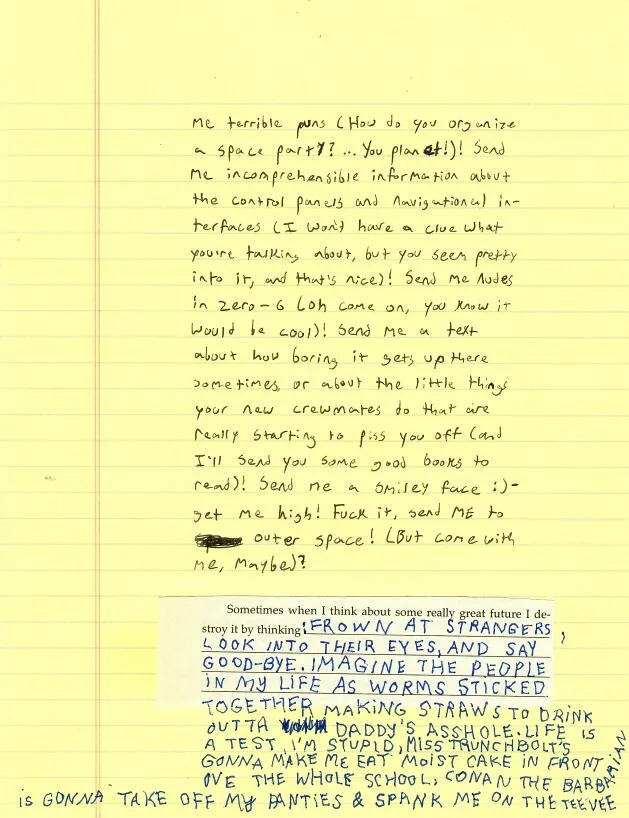 me terrible puns (How do you organize
a space party? ... You planet!)! Send
me incomprehensible information about
the control panels and navigational in-
terfaces (I won't have a clue what
you're talking about, but you seem pretty
into it, and that's nice)! Send me nudes
in zero-G (oh come on, you know it
would be cool)! Send me a text
about how boring it gets up there
sometimes, or about the little things
your new crewmates do that are
really starting to piss you off (and
I'll send you some good books to
read)! Send me a smiley face :)-
get me high! Fuck it, send ME to
outer space! (But come with
me, maybe)?
Sometimes when I think about some really great future I de-
stroy it by thinking: FROWN AT STRANGERS,
LOOK INTO THEIR EYES, AND SAY
GOOD-BYE. IMAGINE THE PEOPLE
IN MY LIFE AS WORMS STICKED
TOGETHER MAKING STRAWS TO DRINK
OUTTA DADDY'S ASSHOLE. LIFE IS
A TEST, I'M STUPID, MISS TRUNCHBOLT'S
GONNA MAKE ME EAT MOIST CAKE IN FRONT
OVE THE WHOLE SCHOOL, CONAN THE BARBARIAN
is GONNA TAKE OFF MY PANTIES & SPANK ME ON THE TEEVEE